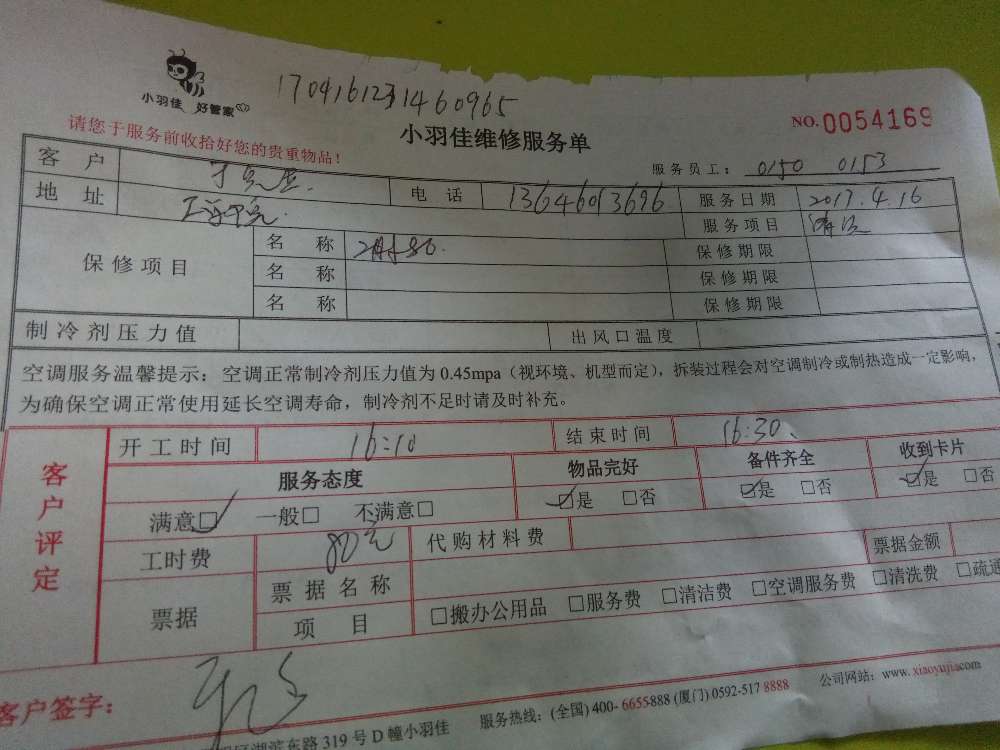 小羽佳 好管家
17041612331460965
请您于服务前收拾好您的贵重物品！
小羽佳维修服务单
NO.0054169
服务员工： 0150 0153
客户 电话 13646013696 服务日期 2017.4.16
地址 服务项目
保修项目 名称 保修期限
名称 保修期限
名称 保修期限
制冷剂压力值 出风口温度
空调服务温馨提示：空调正常制冷剂压力值为 0.45mpa（视环境、机型而定），拆装过程会对空调制冷或制热造成一定影响，
为确保空调正常使用延长空调寿命，制冷剂不足时请及时补充。
客户评定
开工时间 16:10 结束时间 16:30
服务态度 物品完好 备件齐全 收到卡片
满意☑ 一般□ 不满意□ ☑是 □否 ☑是 □否 ☑是 □否
工时费 80元 代购材料费 票据金额
票据 票据名称
项目 □搬办公用品 □服务费 □清洁费 □空调服务费 □清洗费 □疏通
客户签字：
湖滨东路 319 号 D 幢小羽佳 服务热线：(全国) 400- 6655888 (厦门) 0592-517 8888 公司网站：www.xiaoyujia.com